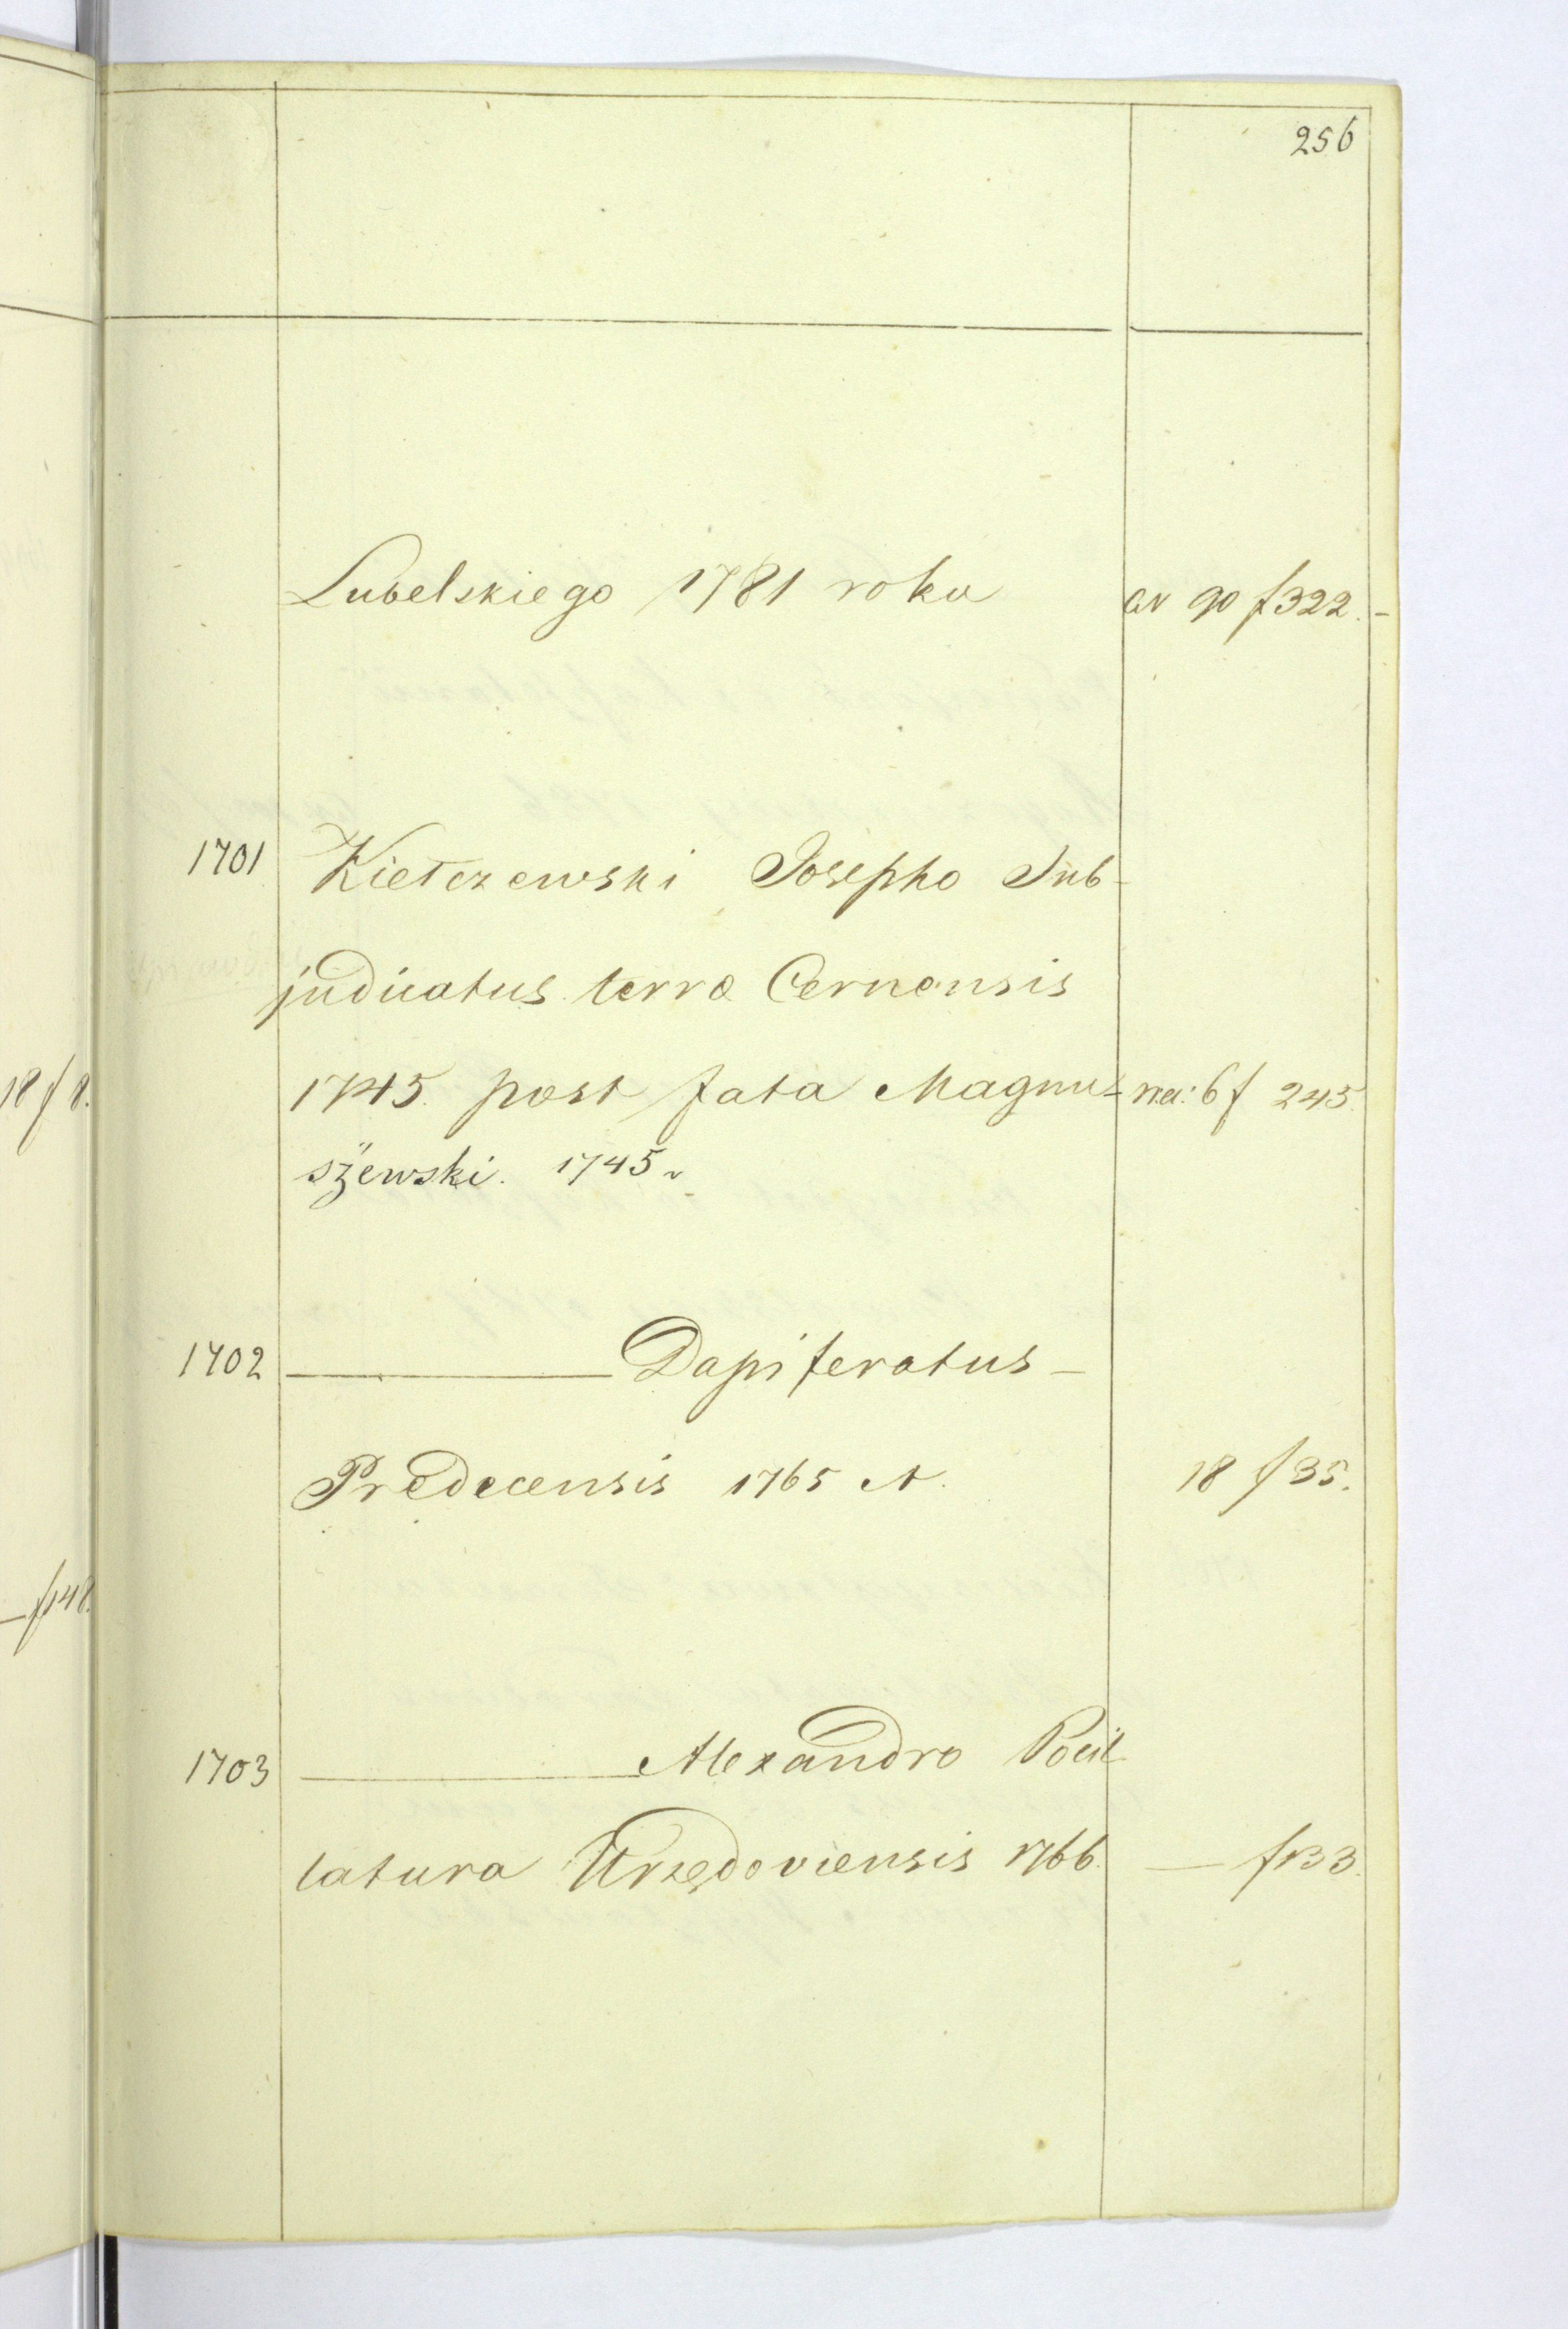 256
Lubelskiego 1781 roku av 90 f 322. -
1701 Kiełczewski Josepho Sub-
judicatus terræ Cernensis
1745. post fata Magnu- rei: 6 f 245
szewski. 1745 r
1702 ——— Dapiferatus -
Predecensis 1765 A. 18 f 35.
1703 ——— Alexandro Pocil
latura Urzędoviensis 1766. — f 133.
18 f 8.
— f 148.